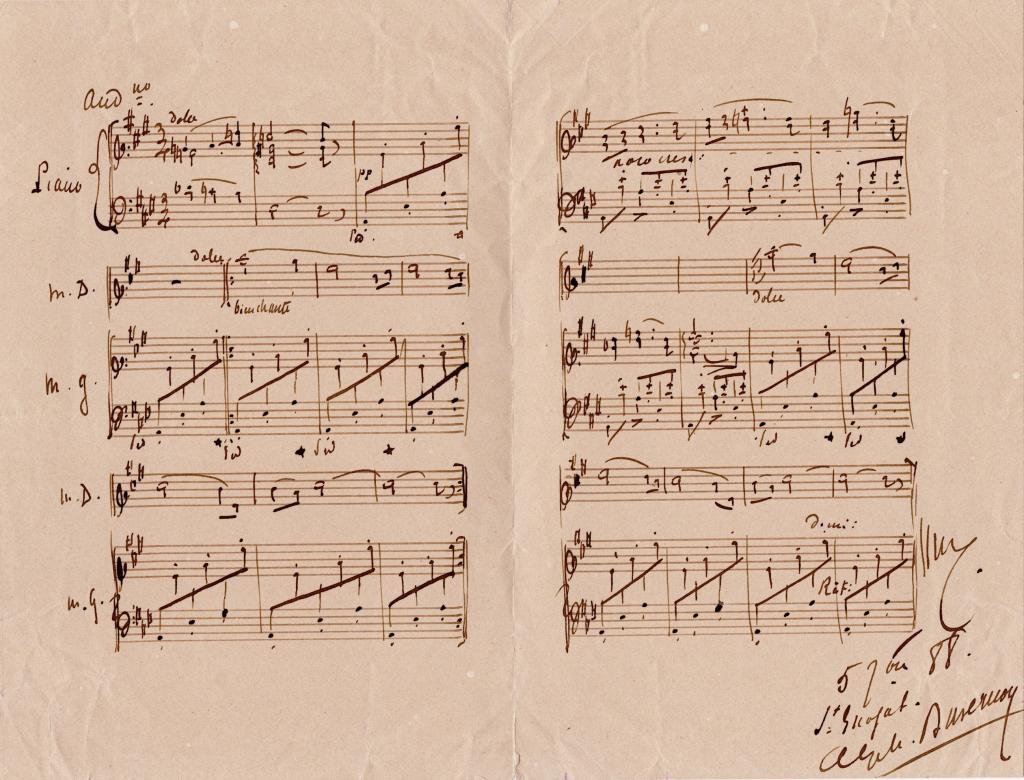 And no
dolce
Piano
pp
Ped.
poco cresc:
m. D.
dolce
bien chanté
dolce
m. g.
Ped
Ped
Ped
Ped
m. D.
Dimi:
m. g.
Rit:
5 7bre 88.
Alph. Duvernoy